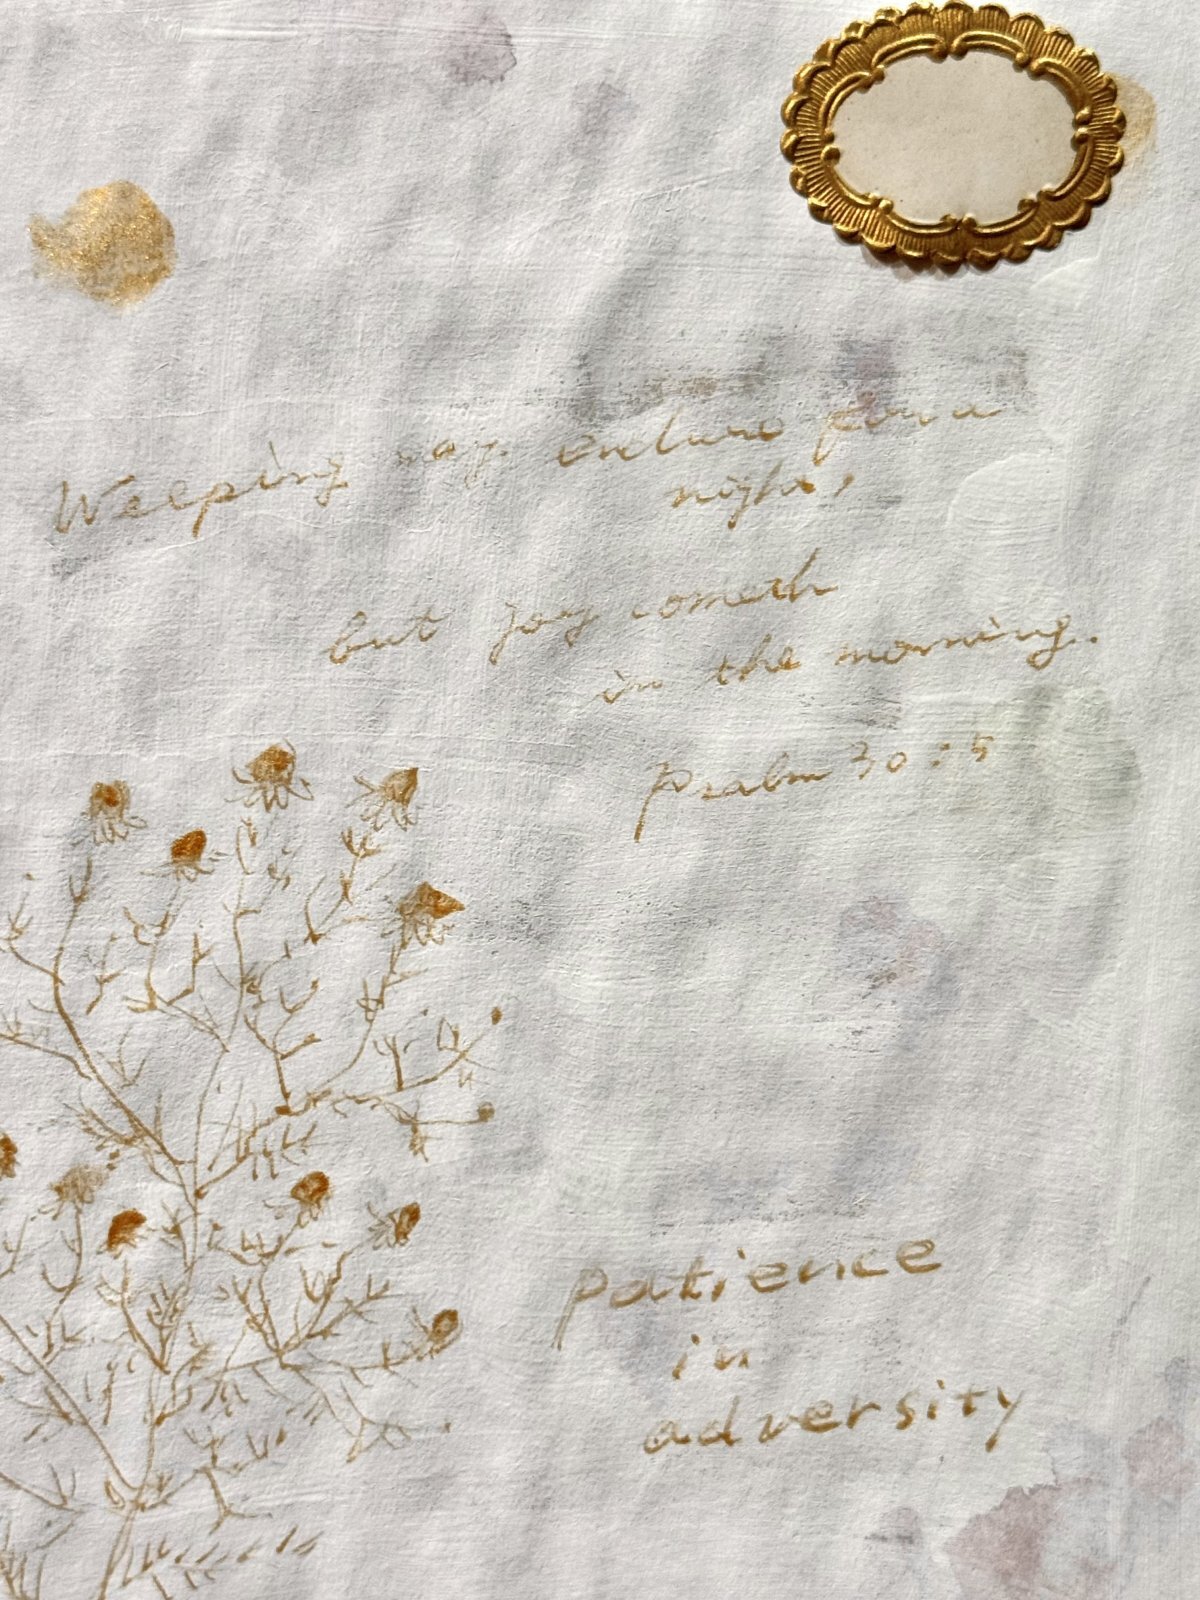 Weeping may endure for a
night,
but joy cometh
in the morning.
Psalm 30:5
Patience
in
adversity